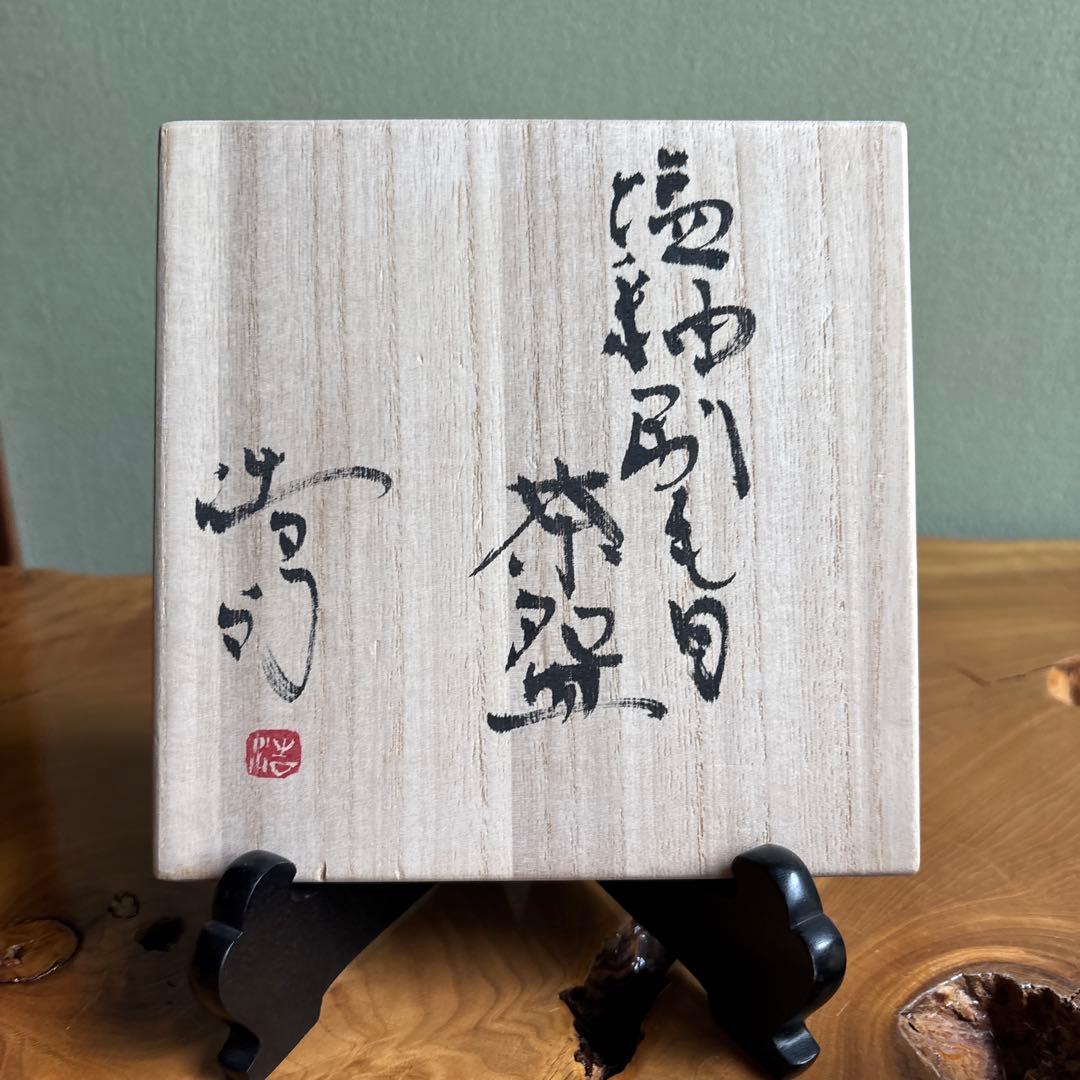 塩釉刷毛目
茶盌
浩司